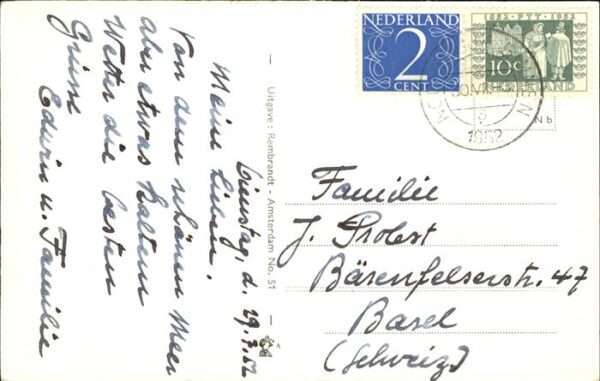 Dienstag, d. 29.7.52
Meine Lieben,
Von dem schönen Meer
aber etwas kaltem
Wetter die besten
Grüsse
Edwin u. Familie
Uitgave: Rembrandt - Amsterdam No. 51
NEDERLAND
2
CENT
1852 - PTT - 1952
10c
NEDERLAND
1952
N b
Familie
J. Probst
Bärenfelserstr. 47
Basel
(Schweiz)